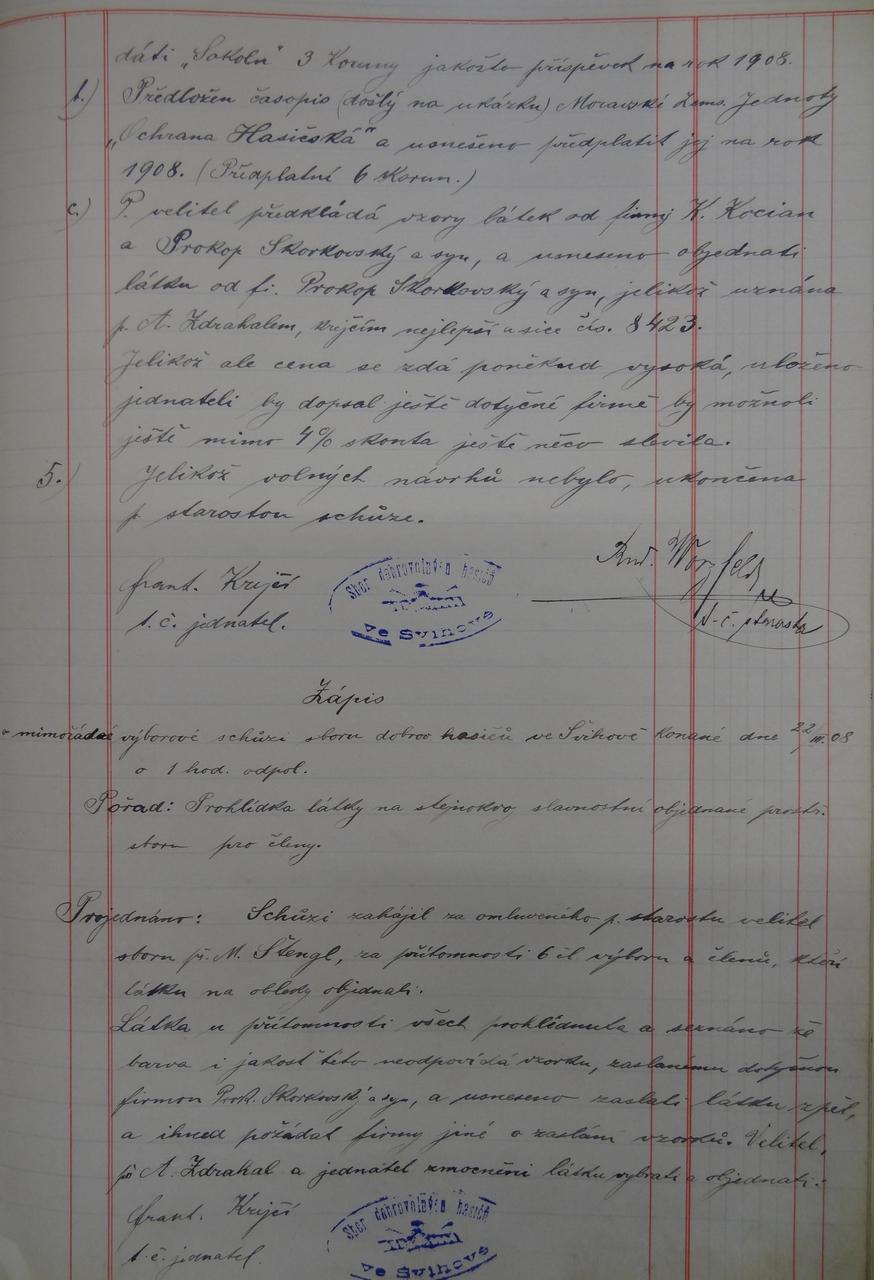 dáti „Sokolu" 3 Koruny jakožto příspěvek na rok 1908.
b.) Předložen časopis (došlý na ukázku) Moravské Zems. Jednoty
„Ochrana Hasičská" a usnešeno předplatit jej na rok
1908. (Předplatní 6 Korun.)
c.) P. velitel předkládá vzory látek od firmy K. Kocian
a Prokop Skorkovský a syn, a usneseno objednati
látku od fi. Prokop Skorkovský a syn, jelikož uznána
p. A. Zdrahalem, krejčím nejlepší a sice čís. 8423.
Jelikož ale cena se zdá poněkud vysoká, uloženo
jednateli by dopsal ještě dotyčné firmě by možnoli
ještě mimo 4% skonta ještě něco slevila.
5.) Jelikož volných návrhů nebylo, ukončena
p. starostou schůze.
Rud.
frant. Krejčí
t. č. jednatel.
Sbor dobrovolných hasičů
ve Svinově
t. č. starosta
Zápis
o mimořádné výborové schůzi sboru dobrov hasičů ve Svinově konané dne 22/III. 08
o 1 hod. odpol.
Pořad: Prohlídka látky na stejnokroj slavnostní objednané prostř.
sboru pro členy.
Projednáno: Schůzi zahájil za omluveného p. starostu velitel
sboru p. M. Štengl, za přítomnosti 6 čl výboru a členů, kteří
látku na obleky objednali.
Látka u přítomnosti všech prohlídnuta a seznáno že
barva i jakost této neodpovídá vzorku, zaslanému dotyčnou
firmou Prok. Skorkovský a syn, a usneseno zaslati látku zpět,
a ihned požádat firmy jiné o zaslání vzorků. Velitel,
p. A. Zdrahal a jednatel zmocněni látku vybrati a objednati.
frant. Krejčí
t. č. jednatel.
Sbor dobrovolných hasičů
ve Svinově